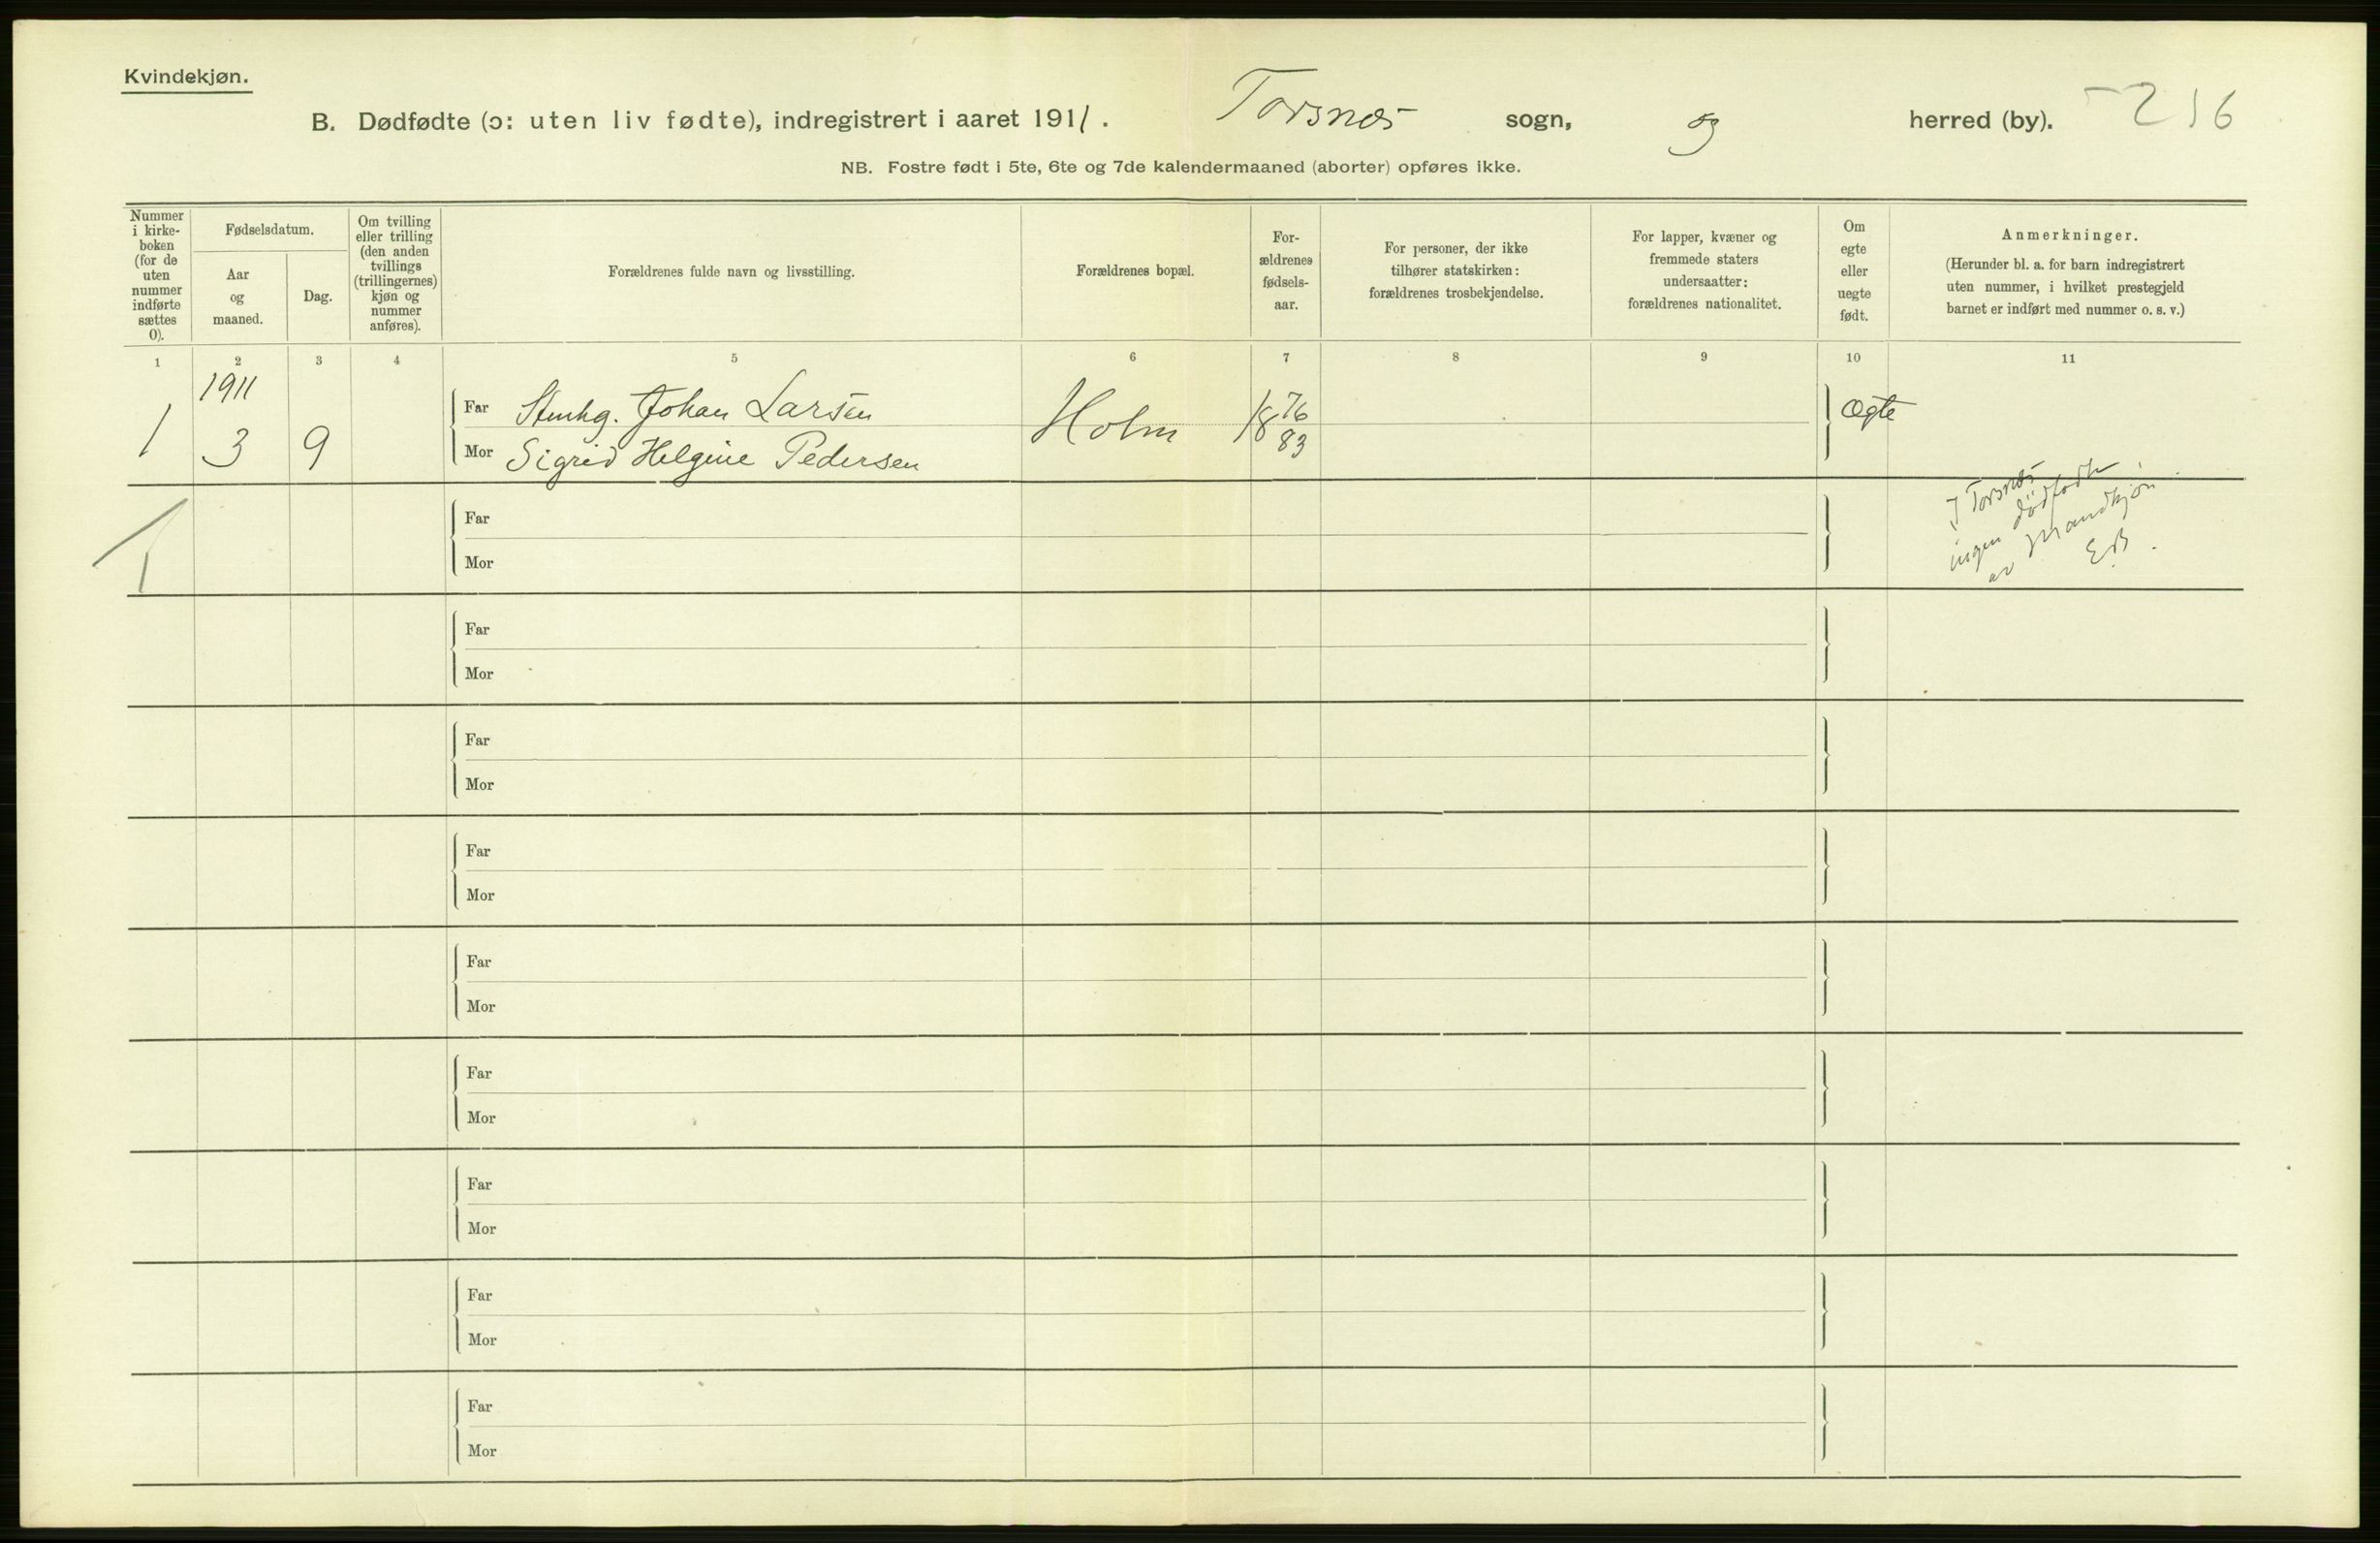 Kvindekjøn.
B. Dødfødte (ɔ: uten liv fødte), indregistrert i aaret 1911. Torsnes sogn, og herred (by). 216
NB. Fostre født i 5te, 6te og 7de kalendermaaned (aborter) opføres ikke.
Nummer
i kirke-
boken
(for de
uten
nummer
indførte
sættes
0).
Fødselsdatum.
Aar
og
maaned.
Dag.
Om tvilling
eller trilling
(den anden
tvillings
(trillingernes)
kjøn og
nummer
anføres).
Forældrenes fulde navn og livsstilling.
Forældrenes bopæl.
For-
ældrenes
fødsels-
aar.
For personer, der ikke
tilhører statskirken:
forældrenes trosbekjendelse.
For lapper, kvæner og
fremmede staters
undersaatter:
forældrenes nationalitet.
Om
egte
eller
uegte
født.
Anmerkninger.
(Herunder bl. a. for barn indregistrert
uten nummer, i hvilket prestegjeld
barnet er indført med nummer o. s. v.)
1 2 3 4 5 6 7 8 9 10 11
1911
1 3 9
Far Stenhg. Johan Larsen
Mor Sigrid Helgine Pedersen
Holm
1876
83
Ægte
I Torsnes
ingen dødfødte
av Mandkjøn
EB.
Far
Mor
Far
Mor
Far
Mor
Far
Mor
Far
Mor
Far
Mor
Far
Mor
Far
Mor
Far
Mor